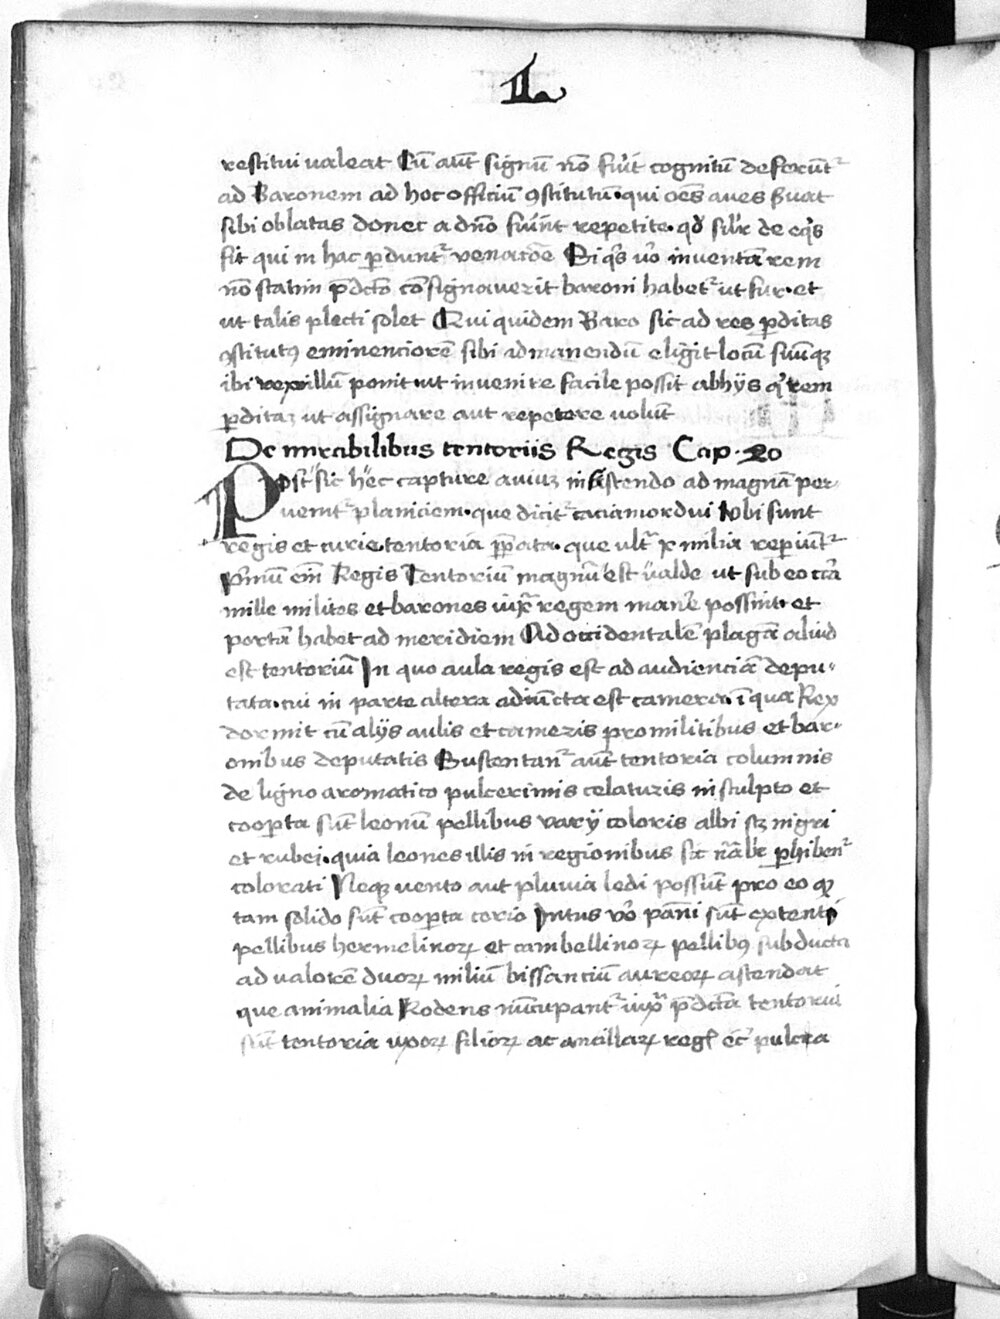 II
restitui valeat Cū aūt signū nō fu'it cognitū deferūt᷑
ad Baronem ad hoc officiū ꝯstitutū·qui oēs aues s̄uat
sibi oblatas donec a dn̄o fu'int repetite·qd̄ silr̄ de eq's
fit qui in hac ꝑdunt᷑ venatōe Si q's v̄o inventā rem
nō statim p̄dc̄to consignauerit baroni habet᷑ ut fur·et
ut talis plecti solet Qui quidem Baro sic ad res ꝑditas
ꝯstitutꝯ eminenciorē sibi ad manendū eligit locū suūqꝫ
ibi vexillū ponit·ut invenire facile possit ab hijs q' rem
ꝑditaꝫ ut assignare aut repetere uolūt
De mirabilibus tentoriis Regis Cap·20
Post sic hec capture auiuꝫ insistendo ad magnā per-
uenit᷑ planiciem·que dicit᷑ caciamordui Vbi sunt
regis et curie tentoria p̄ꝑata·que ult᷑ x milia reperiūt᷑
p'mū em̄ Regis Tentoriū magnū est valde ut sub eo cc̄a
mille milites et barones iux᷑ regem mane possint et
portā habet ad meridiem Ad occidentalē plagā aliud
est tentoriū In quo aula regis est ad audienciā depu-
tata·cui in parte altera adiūcta est camera·ī qua Rex
dormit cū alijs aulis et cameris pro militibus et bar-
onibus deputatis Sustentan᷑ aūt tentoria columnis
de ligno aromatico pulcerimis celaturis insculpto et
cooꝑta sūt leonū pellibus varij coloris albi scꝫ nigri
et rubei·quia leones illis in regionibus sic nāl'r ꝑhiben᷑
colorati Neqꝫ vento aut pluuia ledi possūt pro eo qꝫ
tam solido sūt cooꝑta corio Intus v̄o panni sūt extenti
pellibus hermelinoꝝ et cambellinoꝝ pellibꝯ subducta
ad valorē duoꝝ miliū bissanciū aureoꝝ ascendat
que animalia Rodens nūcupant᷑ iux᷑ p̄dc̄ta tentoria
sūt tentoria uxoꝝ filioꝝ ac ancillaꝝ reg' ec̄ pulcra